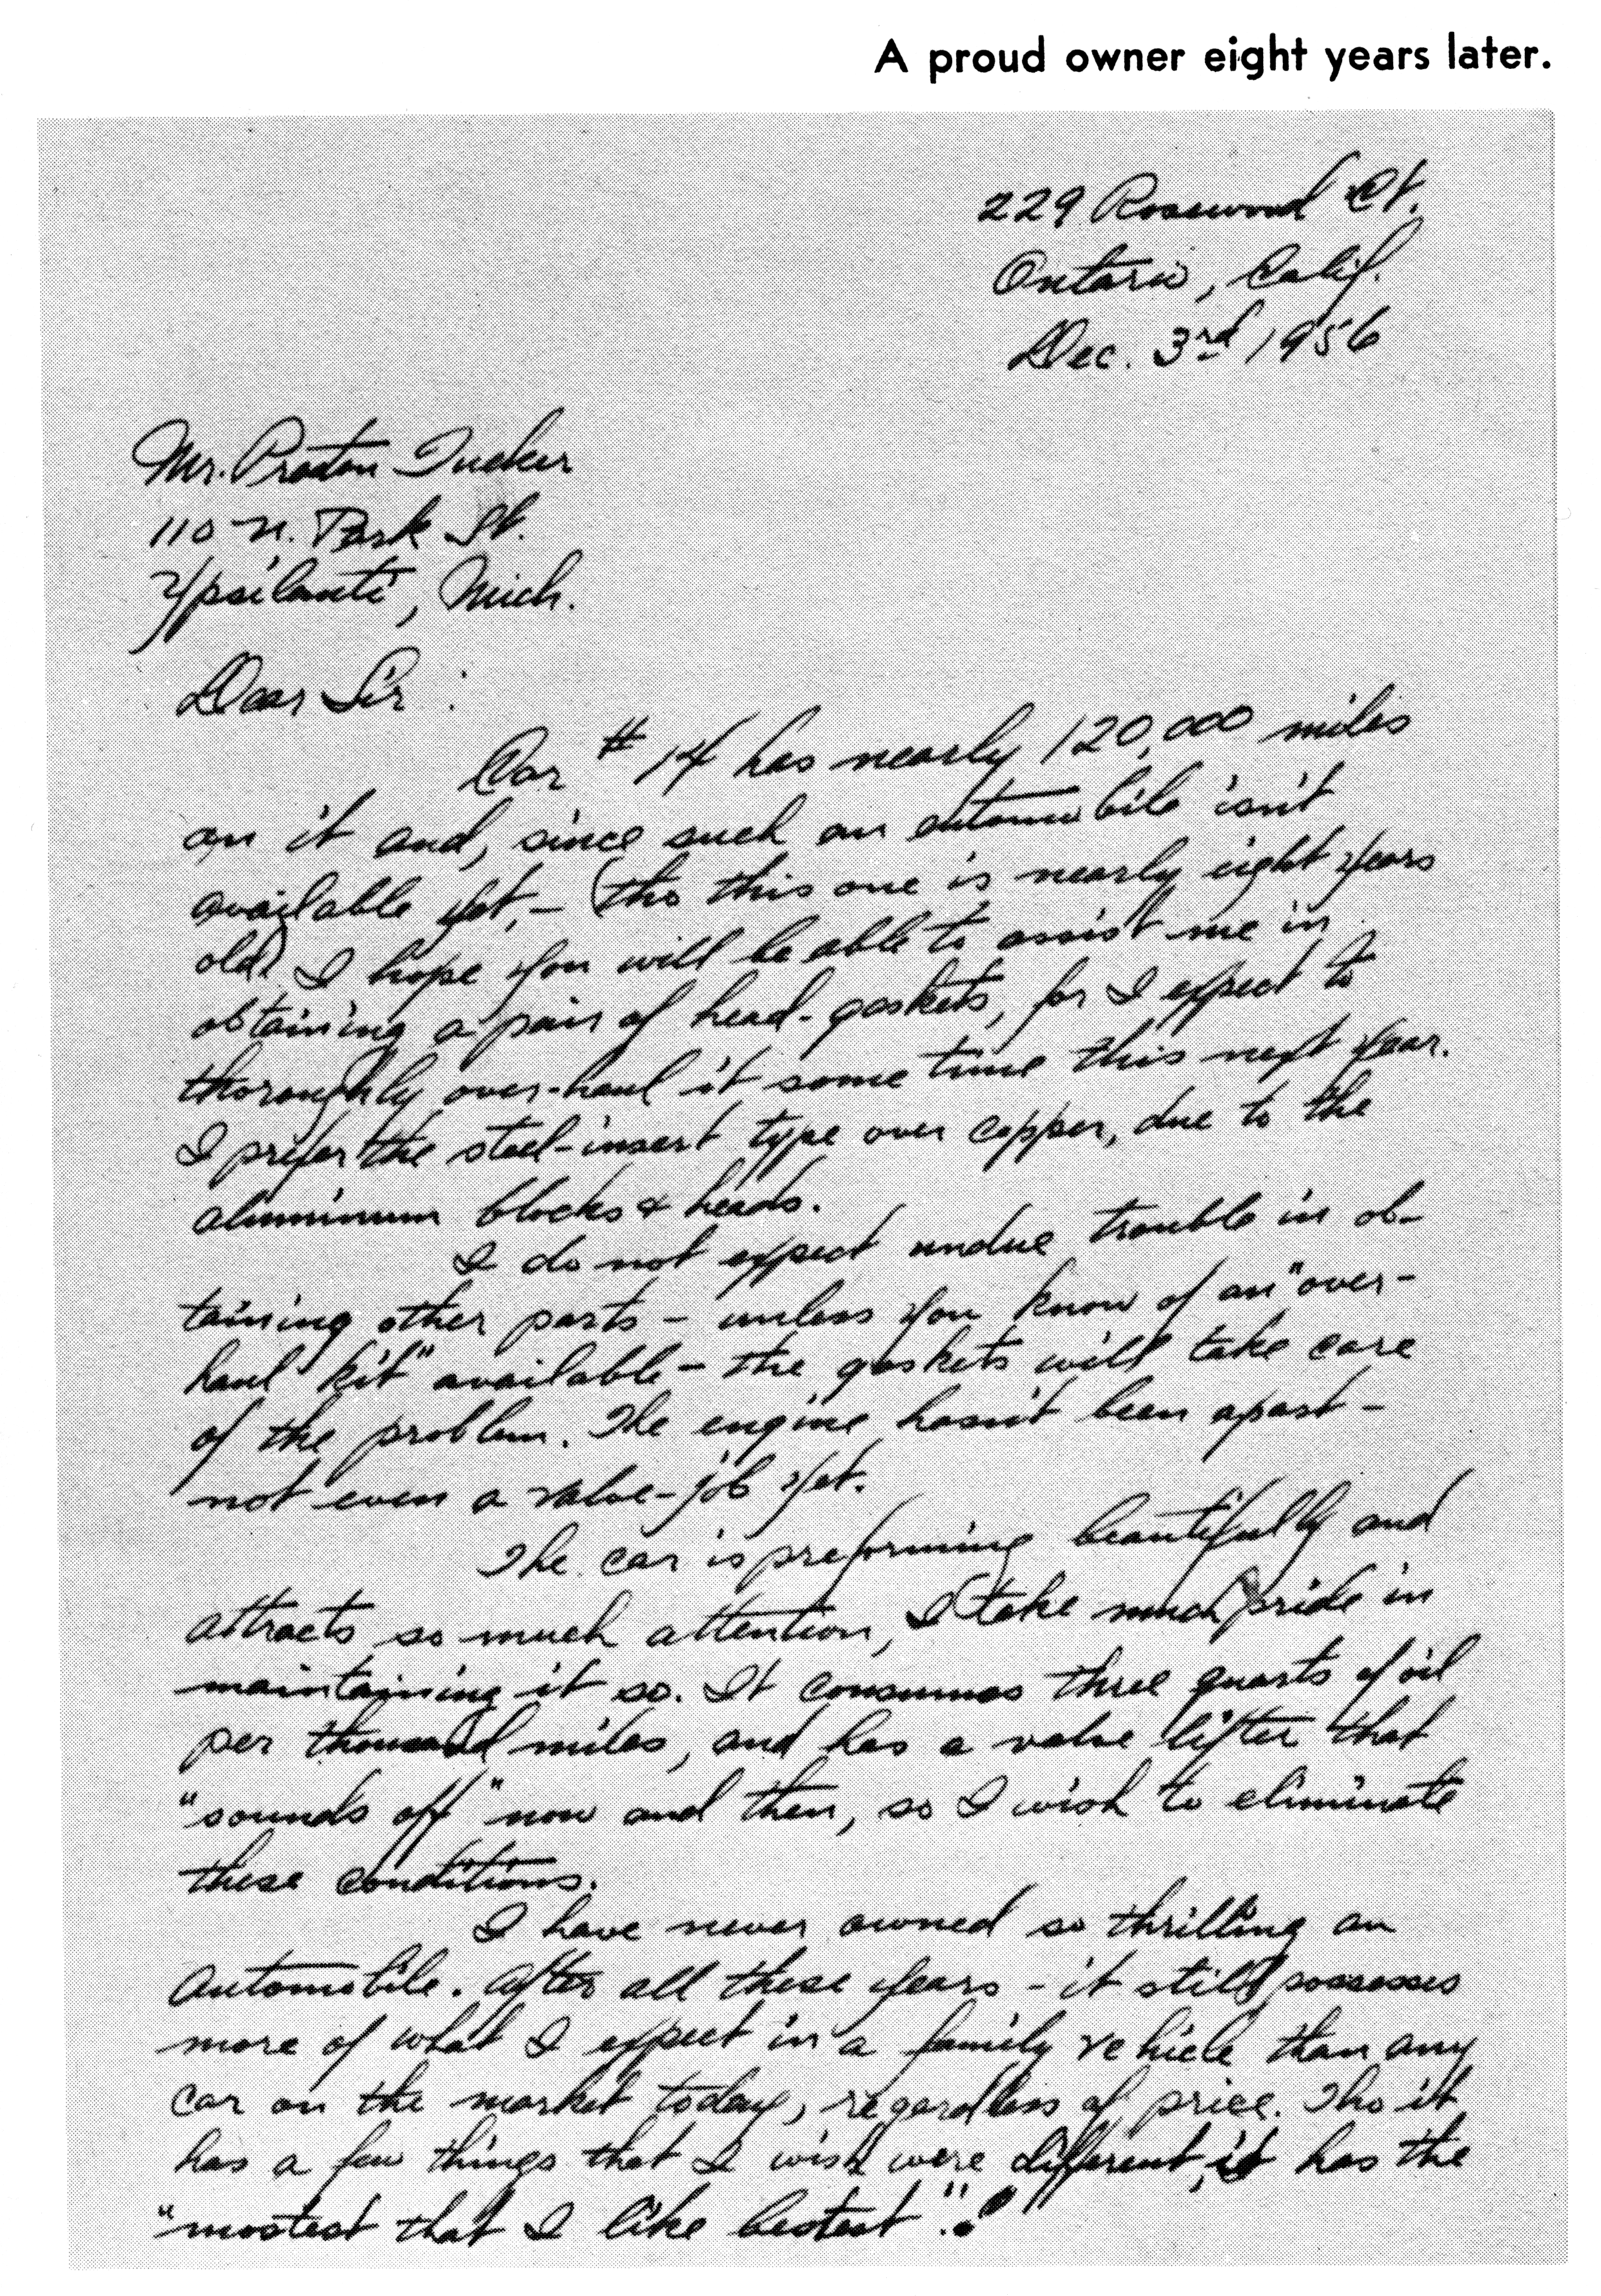 A proud owner eight years later.
229 Rosewood Ct.
Ontario, Calif.
Dec. 3rd 1956
Mr. Preston Tucker
110 N. Park St.
Ypsilanti, Mich.
Dear Sir :
Car #14 has nearly 120,000 miles
on it and, since such an automobile isn't
available yet, – (tho this one is nearly eight years
old) I hope you will be able to assist me in
obtaining a pair of head-gaskets, for I expect to
thoroughly over-haul it some time this next year.
I prefer the steel-insert type over copper, due to the
aluminum blocks & heads.
I do not expect undue trouble in ob-
taining other parts – unless you know of an "over-
haul kit" available – the gaskets will take care
of the problem. The engine hasn't been apart –
not even a valve-job yet.
The car is preforming beautifully and
attracts so much attention, I take much pride in
maintaining it so. It consumes three quarts of oil
per thousand miles, and has a valve lifter that
"sounds off" now and then, so I wish to eliminate
these conditions.
I have never owned so thrilling an
automobile. After all these years – it still possesses
more of what I expect in a family vehicle than any
car on the market today, regardless of price. Tho it
has a few things that I wish were different, it has the
"mostest that I like bestest"!